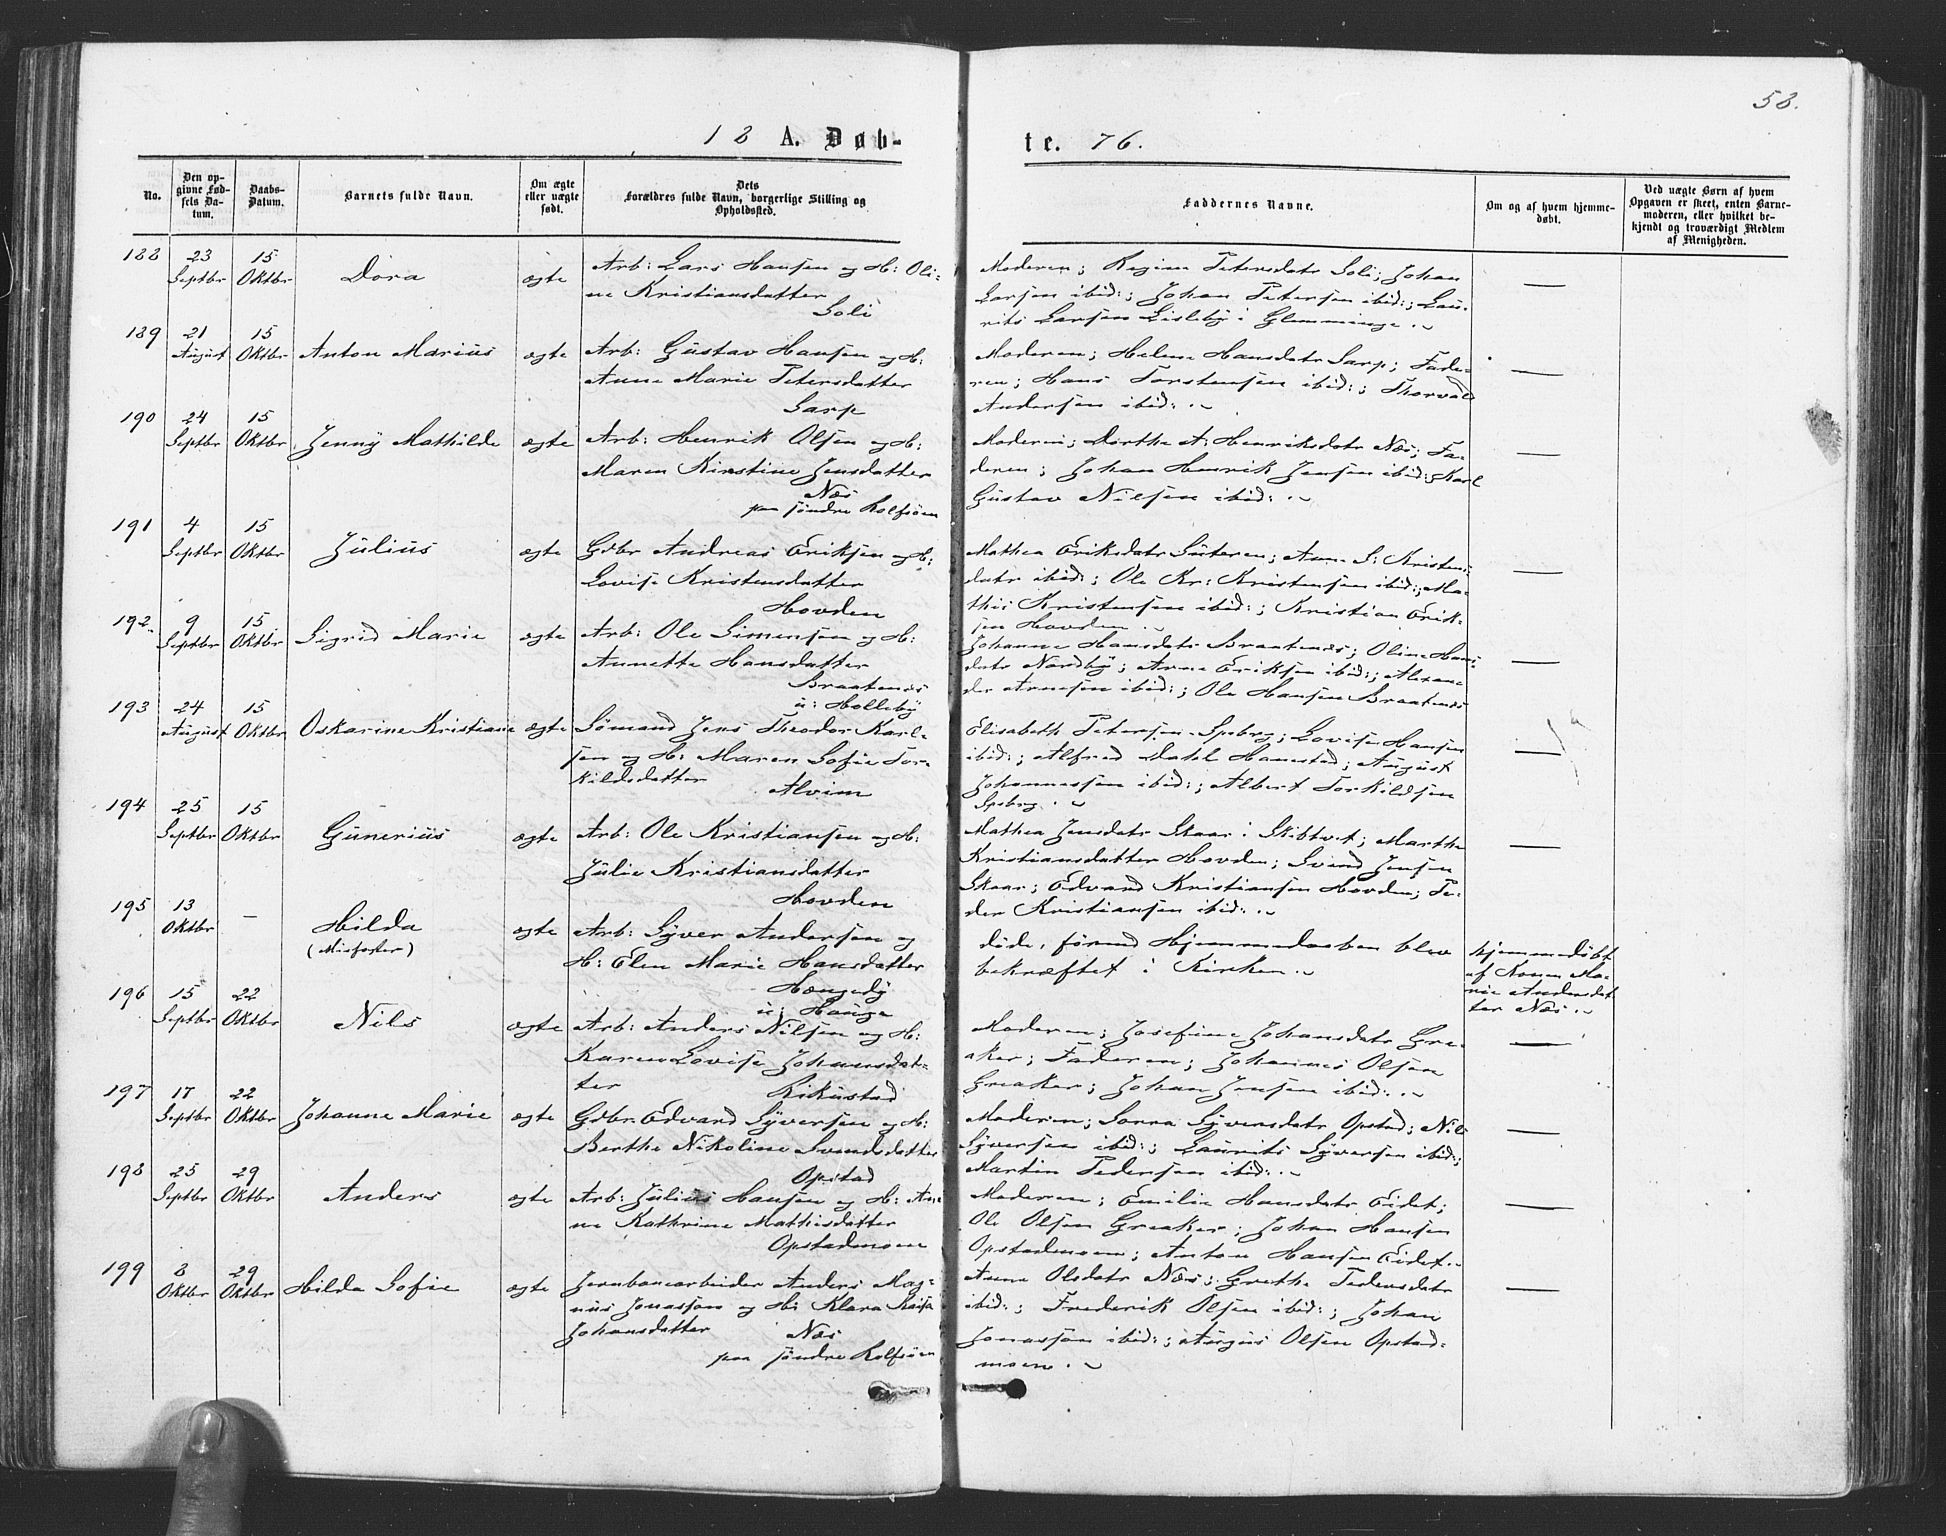 58.
18 A. Døb-
te. 76.
No.
Den op-
givne Fød-
sels Da-
tum.
Daabs-
Datum.
Barnets fulde Navn.
Om ægte
eller uægte
født.
Dets
Forældres fulde Navn, borgerlige Stilling og
Opholdssted.
Faddernes Navne.
Om og af hvem hjemme-
døbt.
Ved uægte Børn af hvem
Opgaven er skeet, enten Barne-
moderen, eller hvilket be-
kjendt og troværdigt Medlem
af Menigheden.
188
23
Septbr
15
Oktbr
Dora
ægte
Arb: Lars Hansen og H: Oli-
ne Kristiansdatter
Soli
Moderen; Regine Petersdatr Soli; Johan
Larsen ibid:; Johan Petersen ibid:; Lau-
rits Larsen Lisleby i Glemminge.
—
189
21
August
15
Oktbr
Anton Marius
ægte
Arb: Gustav Hansen og H:
Anne Marie Petersdatter
Sarp
Moderen; Helene Hansdatr Sarp; Fade-
ren; Hans Torstensen ibid:; Thorvald
Andersen ibid:.
—
190
24
Septbr
15
Oktbr
Jenny Mathilde
ægte
Arb: Henrik Olsen og H:
Maren Kirstine Jensdatter
Næs
paa søndre Rolfsøen
Moderen; Dorthe A: Henriksdatr Næs; Fa-
deren; Johan Henrik Jensen ibid:; Karl
Gustav Nilsen ibid:.
—
191
4
Septbr
15
Oktbr
Julius
ægte
Gdbr Andreas Eriksen og H:
Lovise Kristensdatter
Hovden
Mathea Eriksdatr Søsteren; Anne S: Kristens-
datr ibid:; Ole Kr: Kristensen ibid:; Ma-
this Kristensen ibid:; Kristian Erik-
sen Hovden.
—
192.
9
Septbr
15
Oktbr
Sigrid Marie
ægte
Arb: Ole Simensen og H:
Annette Hansdatter
Braatenes
u: Holleby
Johanne Hansdatr Braatenes; Oline Hans-
datr Nordby; Arne Eriksen ibid:; Alexan-
der Arnesen ibid:; Ole Hansen Braatenes
—
193
24
August
15
Oktbr
Oskarine Kristiane
ægte
Sømand Jens Theodor Karl-
sen og H: Maren Sofie Tor-
kildsdatter
Alvim
Elisabeth Petersen Spsbrg; Lovise Hansen
ibid:; Alfred Dahl Hanestad; August
Johannessen ibid:; Albert Torkildsen
Spsbrg.
—
194
25
Septbr
15
Oktbr
Gunerius
ægte
Arb: Ole Kristiansen og H:
Julie Kristiansdatter
Hovden
Mathea Jensdatr Skaar i Skibtvet; Marthe
Kristiansdatter Hovden; Svend Jensen
Skaar; Edvard Kristiansen Hovden; Pe-
der Kristiansen ibid:.
—
195
13
Oktbr
—
Hilda
(Misfoster)
ægte
Arb: Syver Andersen og
H: Elen Marie Hansdatter
Hængedy
u: Hauge
døde, førend Hjemmedaaben blev
bekræftet i Kirken.
hjemmedøbt
af Konen Ma-
rie Andersdat
ter Næs.
196
15
Septbr
22
Oktbr
Nils
ægte
Arb: Anders Nilsen og H:
Karen Lovise Johannesdat-
ter
Rikustad
Moderen; Josefine Johansdatr Gre-
aker; Faderen; Johannes Olsen
Greaker; Johan Jensen ibid:.
—
197
17
Septbr
22
Oktbr
Johanne Marie
ægte
Gdbr Edvard Syversen og H:
Berthe Nikoline Svendsdatter
Opstad
Moderen; Sorra Syversdatr Opstad; Nils
Syversen ibid:; Laurits Syversen ibid:;
Martin Pedersen ibid:.
—
198
25
Septbr
29
Oktbr
Anders
ægte
Arb: Julius Hansen og H: An-
ne Kathrine Mathisdatter
Opstadmoen
Moderen; Emilie Hansdatr Eidet;
Ole Olsen Greaker; Johan Hansen
Opstadmoen; Anton Hansen Eidet.
—
199
8
Oktbr
29
Oktbr
Hilda Sofie
ægte
Jernbanearbeider Anders Mag-
nus Jonassøn og H: Klara Kaisa
Johansdatter
Næs
paa søndre Rolfsøen
Anne Olsdatr Næs; Grethe Pedersdatr
ibid:; Frederik Olsen ibid:; Johan
Jonassøn ibid:; August Olsen Opstad-
moen.
—